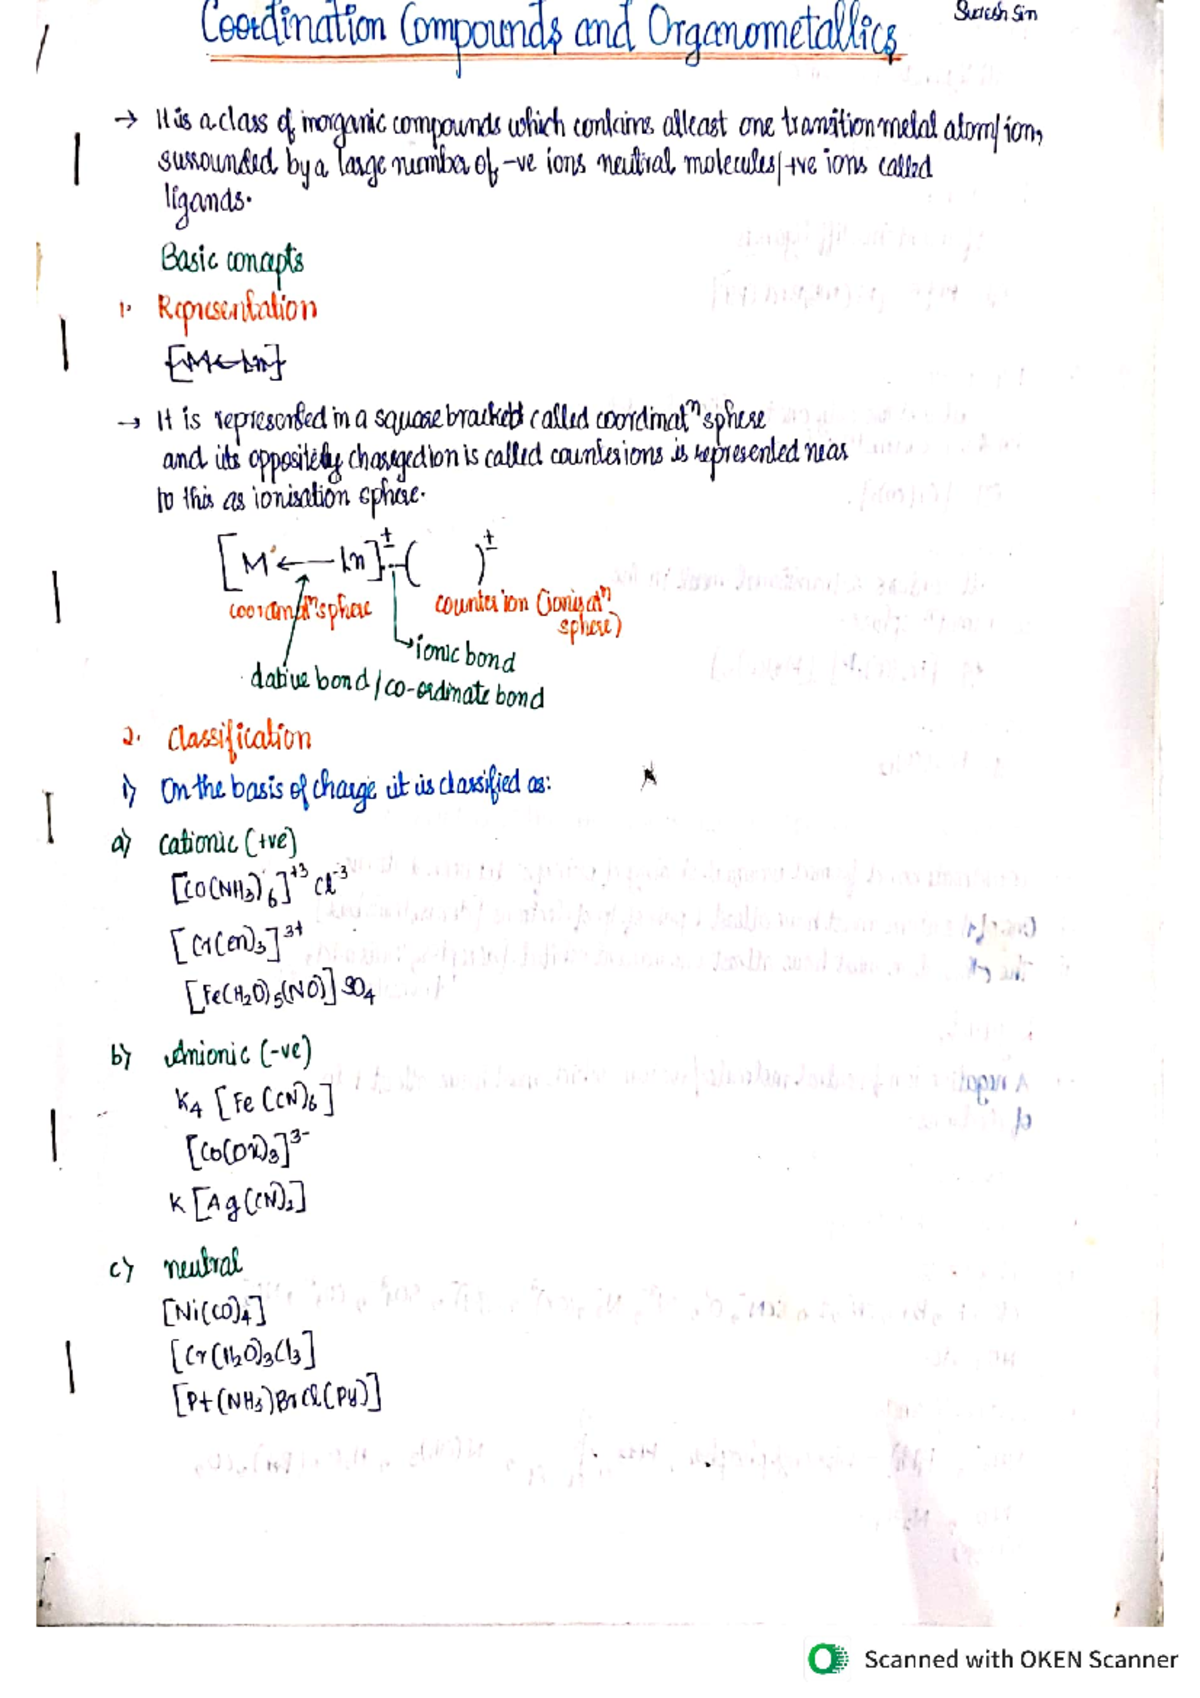 Coordination Compounds and Organometallics
Suresh Sin
→ It is a class of inorganic compounds which contains atleast one transition metal atom/ion,
surrounded by a large number of -ve ions neutral molecules/+ve ions called
ligands.
Basic concepts
1. Representation
[M←Ln]
→ It is represented in a square bracket called coordinatⁿ sphere
and its oppositely charged ion is called counter ions is represented near
to this as ionisation sphere.
[M←Ln]± ( )±
coordinatⁿ sphere counter ion (ionisatⁿ
sphere)
→ionic bond
dative bond/co-ordinate bond
2. Classification
i) On the basis of charge it is classified as:
a) cationic (+ve)
[Co(NH₃)₆]⁺³ Cl⁻³
[Cr(en)₃]³⁺
[Fe(H₂O)₅(NO)] SO₄
b) Anionic (-ve)
K₄ [Fe(CN)₆]
[Co(Ox)₃]³⁻
K[Ag(CN)₂]
c) neutral
[Ni(CO)₄]
[Cr(H₂O)₃Cl₃]
[Pt(NH₃)BrCl(Py)]
Scanned with OKEN Scanner